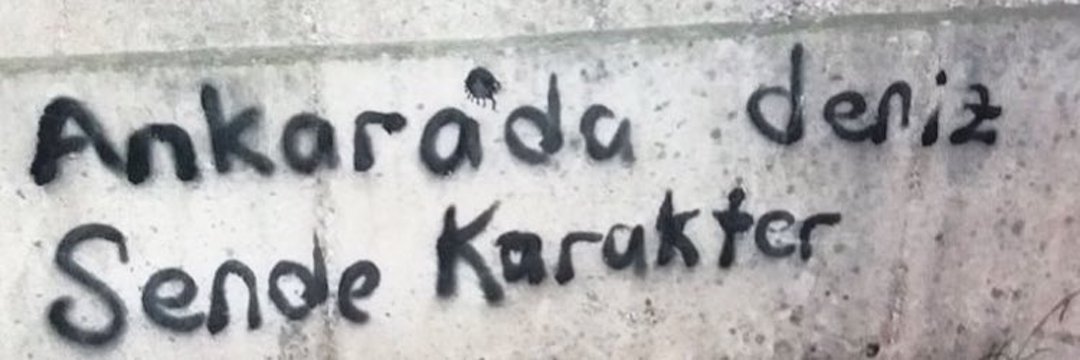 Ankarada deniz
Sende Karakter